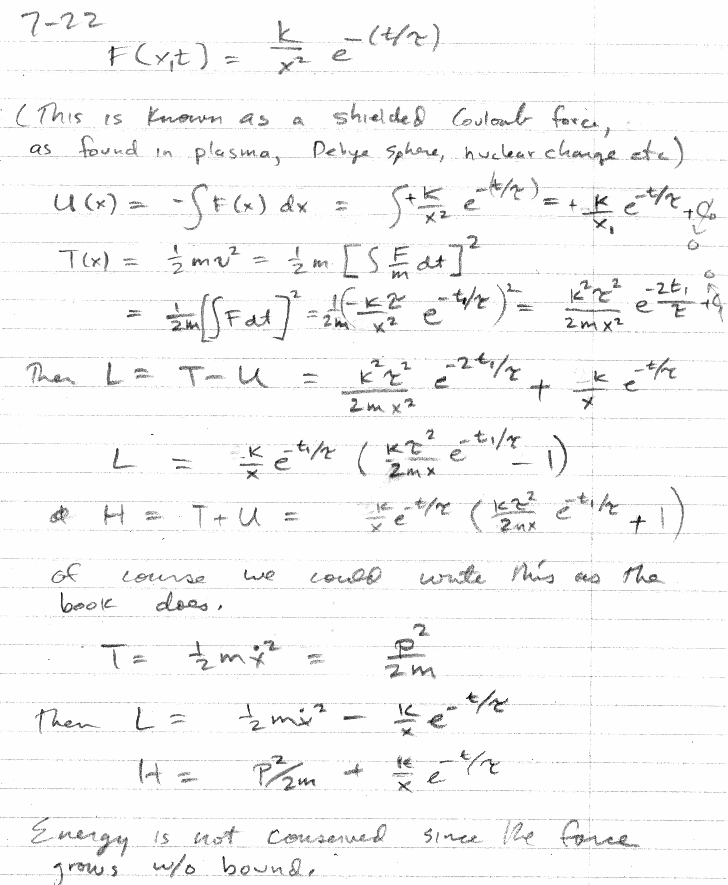 7-22
F(x,t) = k/x² e^-(t/τ)
(This is known as a shielded Coulomb force,
as found in plasma, Debye sphere, nuclear charge etc)
U(x) = -∫F(x) dx = ∫+k/x² e^-(t/τ) = + k/x₁ e^-t/τ + C₀ → 0
T(x) = ½mv² = ½m [∫ F/m dt]²
= 1/2m [∫F dt]² = 1/2m (-kτ/x² e^-t₁/τ)² = k²τ²/2mx² e^-2t₁/τ + C₁ → 0
Then L = T-U = k²τ²/2mx² e^-2t₁/τ + k/x e^-t/τ
L = k/x e^-t₁/τ (kτ²/2mx e^-t₁/τ - 1)
& H = T+U = k/x e^-t/τ (kτ²/2mx e^-t₁/τ + 1)
Of course we could write this as the
book does.
T = ½mẋ² = p²/2m
Then L = ½mẋ² - k/x e^-t/τ
H = p²/2m + k/x e^-t/τ
Energy is not conserved since the force
grows w/o bound.